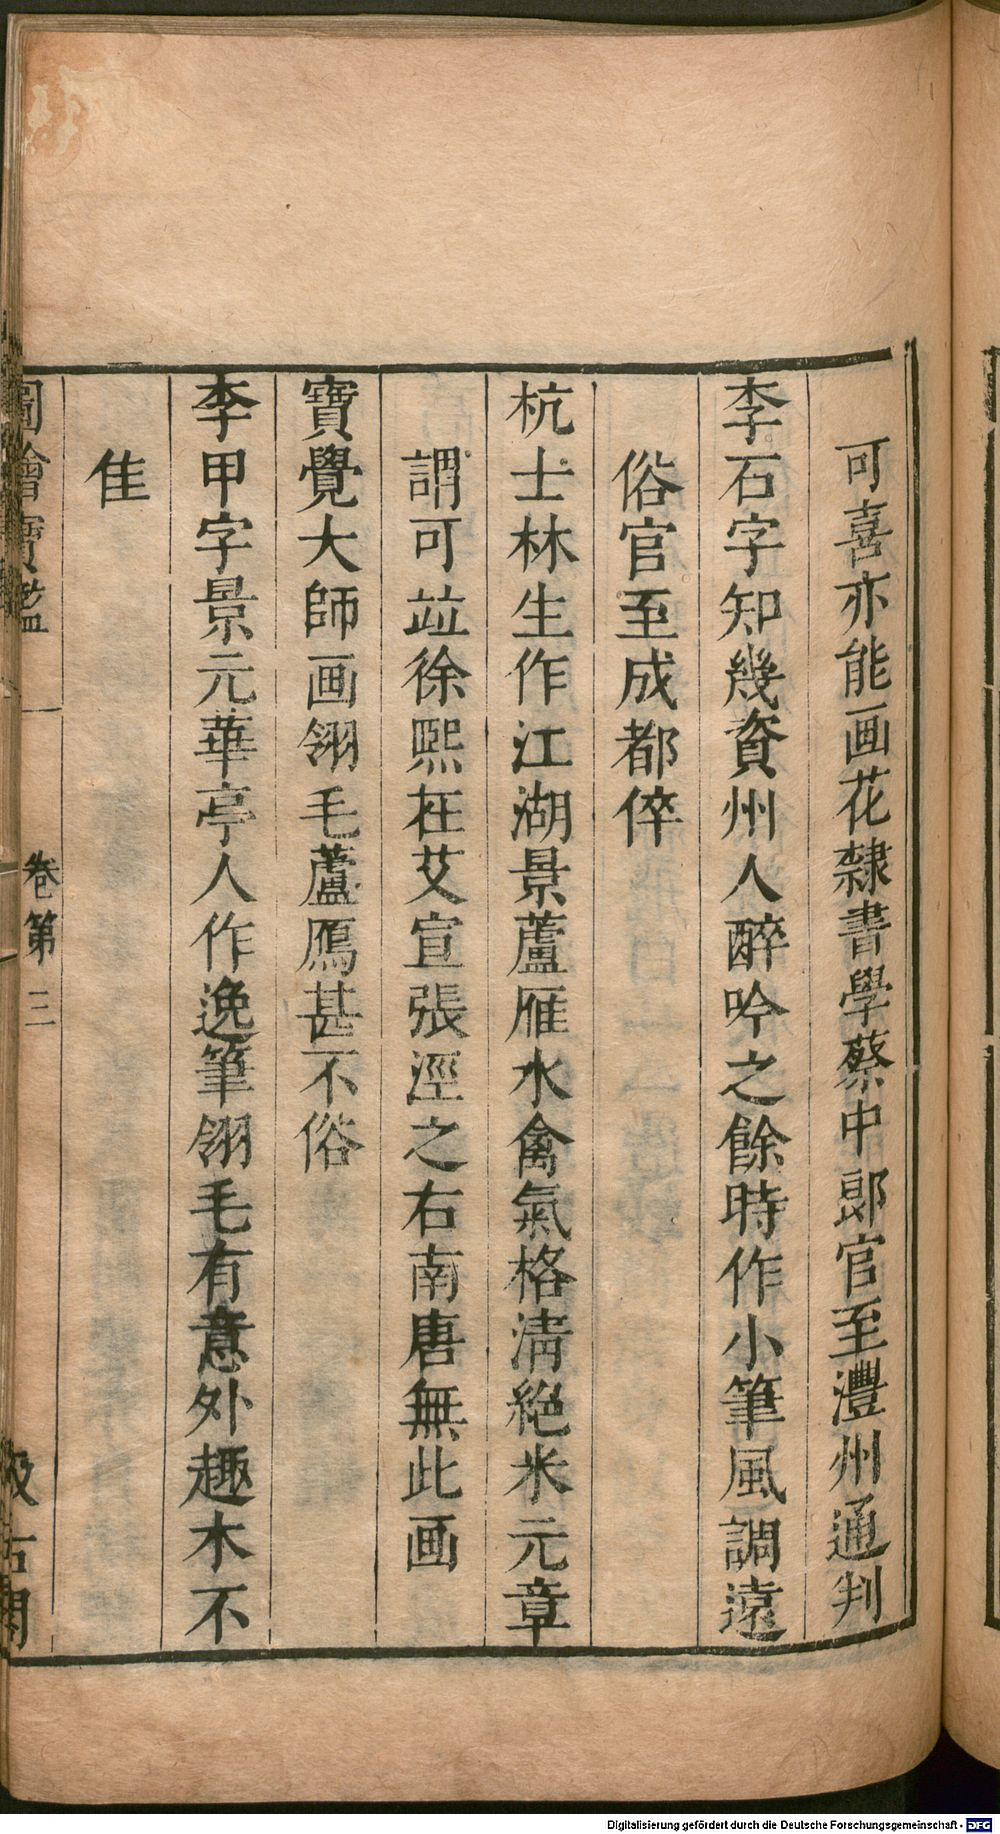 可喜亦能画花隸書學蔡中郎官至澧州通判
李石字知幾資州人醉吟之餘時作小筆風調遠
俗官至成都倅
杭士林生作江湖景蘆雁水禽氣格清絕米元章
謂可竝徐熙在艾宣張涇之右南唐無此画
寶覺大師画翎毛蘆鴈甚不俗
李甲字景元華亭人作逸筆翎毛有意外趣木不
佳
圖繪寶鑑
卷第三
汲古閣
Digitalisierung gefördert durch die Deutsche Forschungsgemeinschaft - DFG